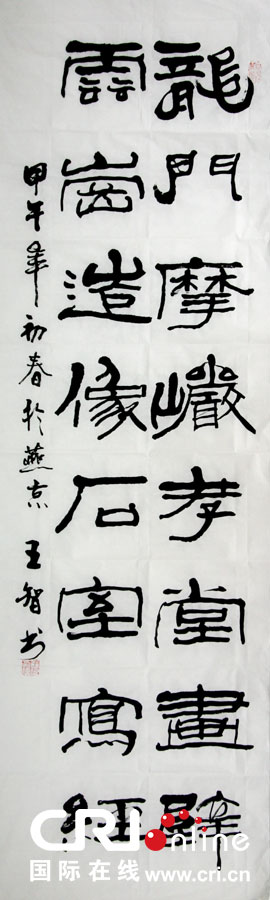 龍門摩巖孝堂畫壁
雲崗造像石室寫經
甲午年初春於燕京 王智书
CRI online
国际在线 www.cri.cn